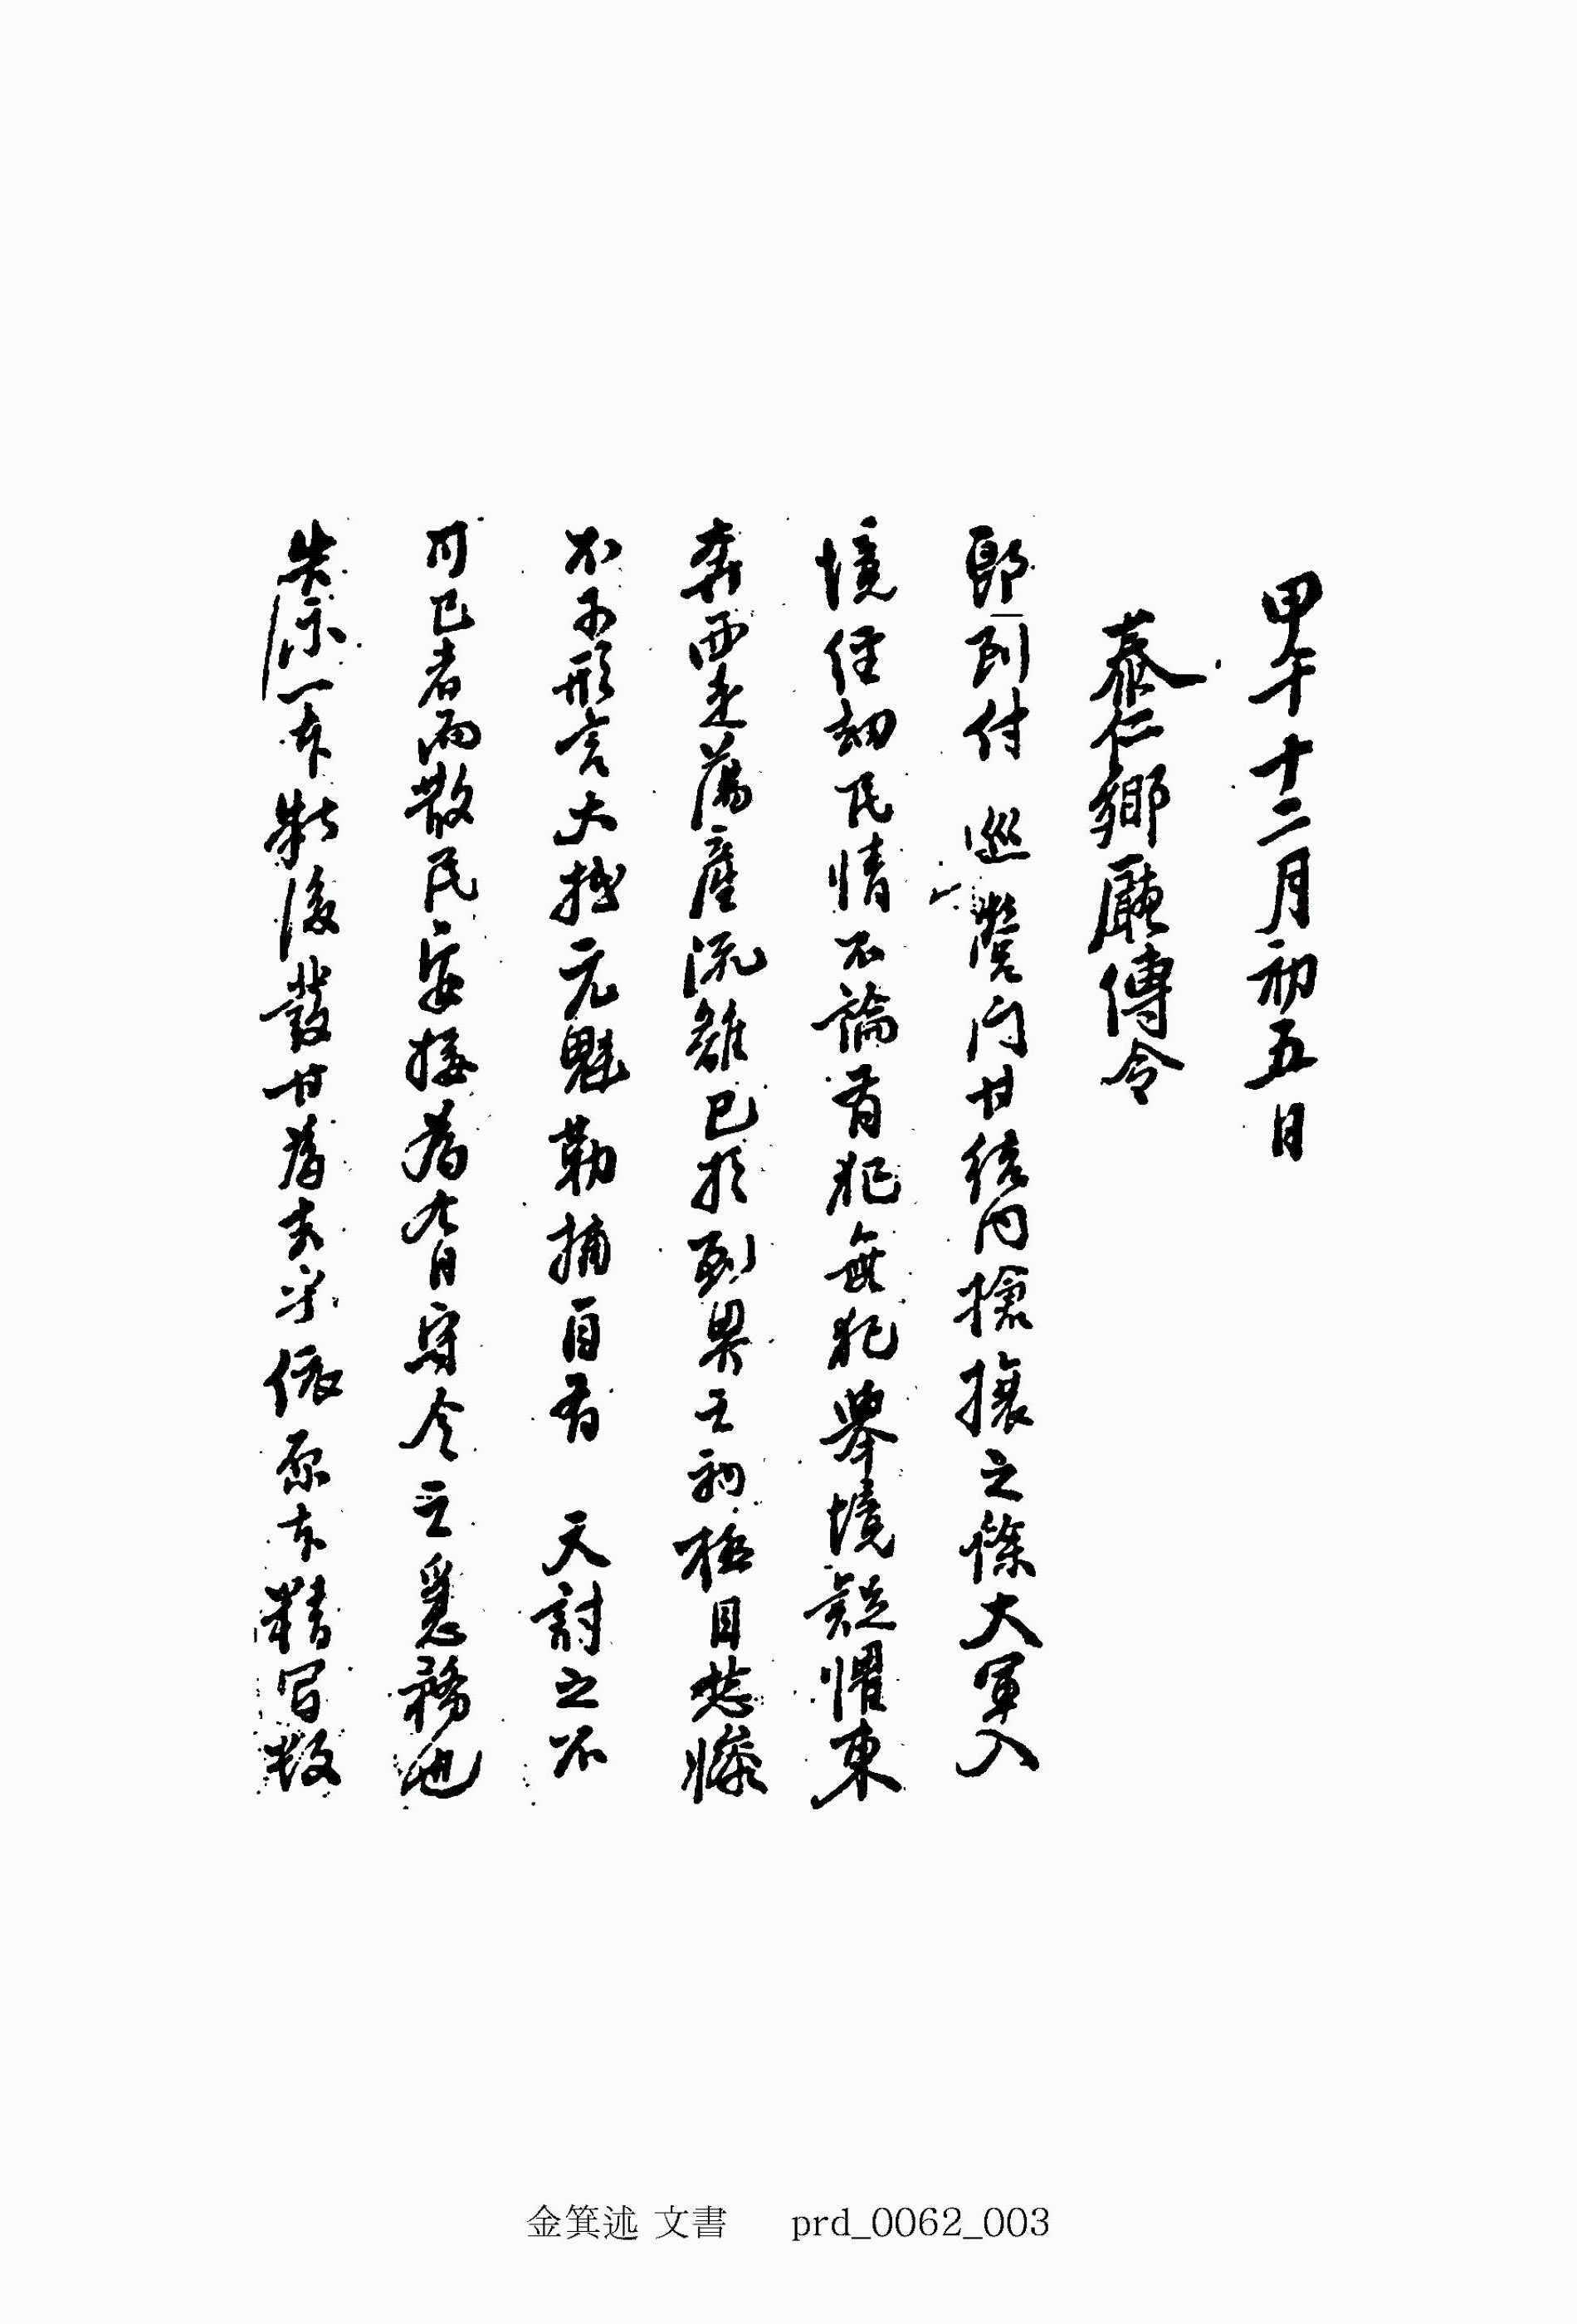 甲午十二月初五日
泰仁鄕廳傳令
卽到付 巡營門甘結內搶攘之餘大軍入
境經劫民情不論有犯無犯擧境疑懼東
奔西走蕩産流離已於到界之初極目愁慘
不可形言大抵元魁勒捕自有 天討之不
可已者而散民安接爲今日守令之急務也
朱示一本粘後發甘爲去乎依原本精写数
金箕述 文書 prd_0062_003